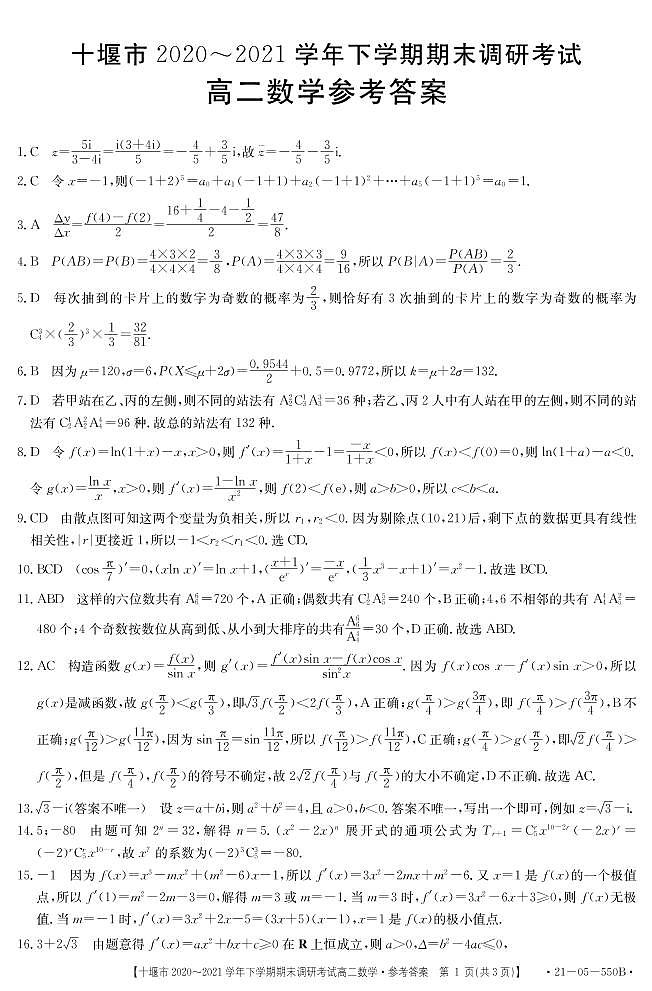 十堰市 2020～2021 学年下学期期末调研考试
高二数学参考答案
1. C z=5i/(3-4i)=i(3+4i)/5=-4/5+3/5i,故 z̄=-4/5-3/5i.
2. C 令 x=-1,则(-1+2)⁵=a₀+a₁(-1+1)+a₂(-1+1)²+…+a₅(-1+1)⁵=a₀=1.
3. A Δy/Δx=(f(4)-f(2))/2=(16+1/4-4-1/2)/2=47/8.
4. B P(AB)=P(B)=(4×3×2)/(4×4×4)=3/8,P(A)=(4×3×3)/(4×4×4)=9/16,所以 P(B|A)=P(AB)/P(A)=2/3.
5. D 每次抽到的卡片上的数字为奇数的概率为2/3,则恰好有 3 次抽到的卡片上的数字为奇数的概率为
C₄³×(2/3)³×1/3=32/81.
6. B 因为 μ=120,σ=6,P(X≤μ+2σ)=0.9544/2+0.5=0.9772,所以 k=μ+2σ=132.
7. D 若甲站在乙、丙的左侧,则不同的站法有 A₂²C₃¹A₃³=36 种;若乙、丙 2 人中有人站在甲的左侧,则不同的站
法有 C₂¹A₂²A₄⁴=96 种. 故总的站法有 132 种.
8. D 令 f(x)=ln(1+x)-x,x>0,则 f′(x)=1/(1+x)-1=-x/(1+x)<0,所以 f(x)<f(0)=0,则 ln(1+a)-a<0.
令 g(x)=ln x/x,x>0,则 f′(x)=(1-ln x)/x²,则 f(2)<f(e),则 a>b>0,所以 c<b<a.
9. CD 由散点图可知这两个变量为负相关,所以 r₁,r₂<0. 因为剔除点(10,21)后,剩下点的数据更具有线性
相关性,|r|更接近 1,所以-1<r₂<r₁<0. 选 CD.
10. BCD (cos π/7)′=0,(xln x)′=ln x+1,((x+1)/eˣ)′=-x/eˣ,(1/3x³-x+1)′=x²-1. 故选 BCD.
11. ABD 这样的六位数共有 A₆⁶=720 个,A 正确;偶数共有 C₂¹A₅⁵=240 个,B 正确;4,6 不相邻的共有 A₄⁴A₅²=
480 个;4 个奇数按数位从高到低、从小到大排序的共有A₆⁶/A₄⁴=30 个,D 正确. 故选 ABD.
12. AC 构造函数 g(x)=f(x)/sin x,则 g′(x)=(f′(x)sin x-f(x)cos x)/sin²x. 因为 f(x)cos x-f′(x)sin x>0,所以
g(x)是减函数,故 g(π/2)<g(π/3),即√3f(π/2)<2f(π/3),A 正确;g(π/4)>g(3π/4),即 f(π/4)>f(3π/4),B 不
正确;g(π/12)>g(11π/12),因为 sin π/12=sin 11π/12,所以 f(π/12)>f(11π/12),C 正确;g(π/4)>g(π/2),即√2f(π/4)>
f(π/2),但是 f(π/4),f(π/2)的符号不确定,故 2√2f(π/4)与 f(π/2)的大小不确定,D 不正确. 故选 AC.
13. √3-i(答案不唯一) 设 z=a+bi,则 a²+b²=4,且 a>0,b<0. 答案不唯一,写出一个即可,例如 z=√3-i.
14. 5;-80 由题可知 2ⁿ=32,解得 n=5. (x²-2x)ⁿ 展开式的通项公式为 Tᵣ₊₁=C₅ʳx¹⁰⁻²ʳ(-2x)ʳ=
(-2)ʳC₅ʳx¹⁰⁻ʳ,故 x⁷ 的系数为(-2)³C₅³=-80.
15. -1 因为 f(x)=x³-mx²+(m²-6)x-1,所以 f′(x)=3x²-2mx+m²-6. 又 x=1 是 f(x)的一个极值
点,所以 f′(1)=m²-2m-3=0,解得 m=3 或 m=-1. 当 m=3 时,f′(x)=3x²-6x+3≥0,则 f(x)无极
值. 当 m=-1 时,f′(x)=3x²+2x-5=(3x+5)(x-1),x=1 是 f(x)的极小值点.
16. 3+2√3 由题意得 f′(x)=ax²+bx+c≥0 在 R 上恒成立,则 a>0,Δ=b²-4ac≤0,
【十堰市 2020～2021 学年下学期期末调研考试高二数学·参考答案 第 1 页(共 3 页)】 ·21-05-550B·